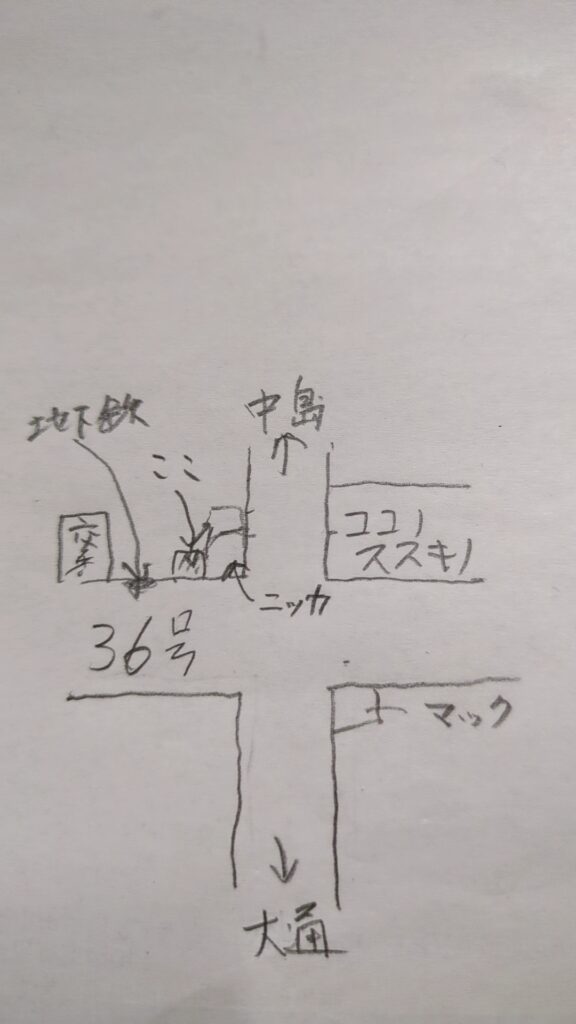 中島
地下鉄
ここ
交番
ココノ
ススキノ
ニッカ
36号
マック
大通